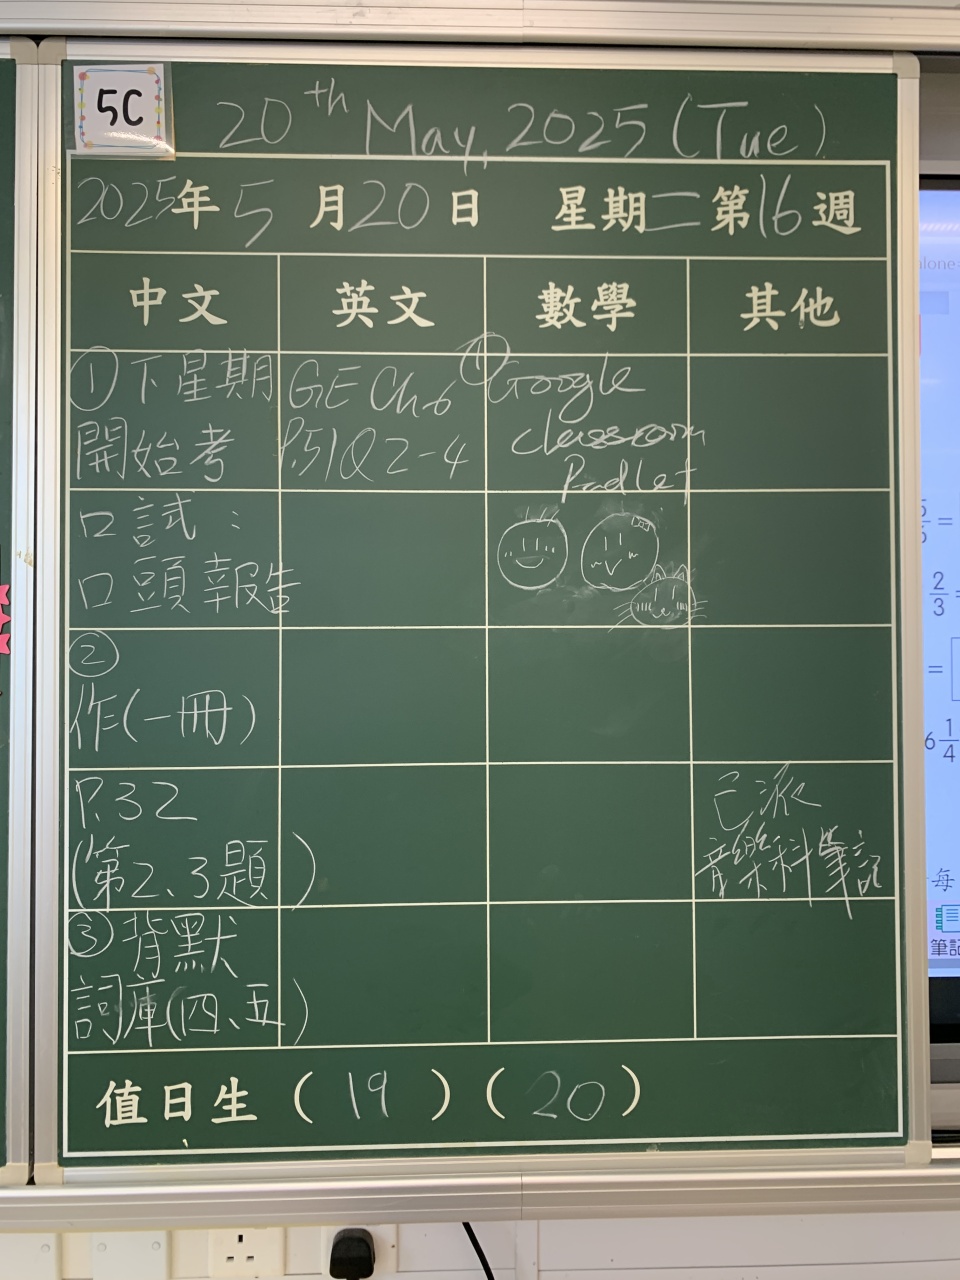 5C
20th May, 2025 (Tue)
2025年5月20日 星期二第16週
中文 英文 數學 其他
①下星期
開始考
口試：
口頭報告
②
作(一冊)
P.32
(第2、3題)
③背默
詞庫(四、五)
GE Ch.6
P.51Q2-4
①Google
classroom
Padlet
已派
音樂科筆記
值日生（19）（20）
=
2/3
=
6 1/4
每
筆記